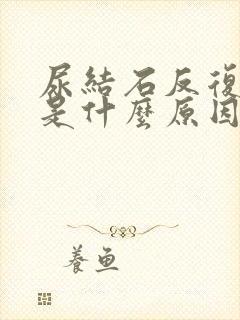 尿結石反復
是什麼原因
養魚